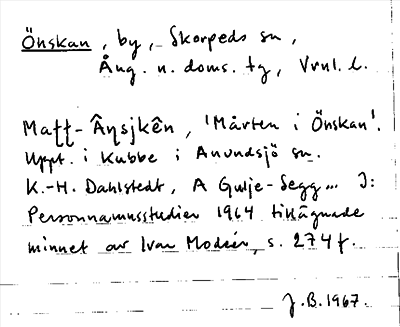 Önskan, by, Skorpeds sn,
Ång. n. doms. tg, Vrnl. l.
Matt-Ânsjkên, 'Mårten i Önskan'.
Uppt. i Kubbe i Anundsjö sn.
K.-H. Dahlstedt, A Gulje-Segg... I:
Personnamnsstudier 1964 tillägnade
minnet av Ivar Modéer, s. 274 f.
J.B. 1967.